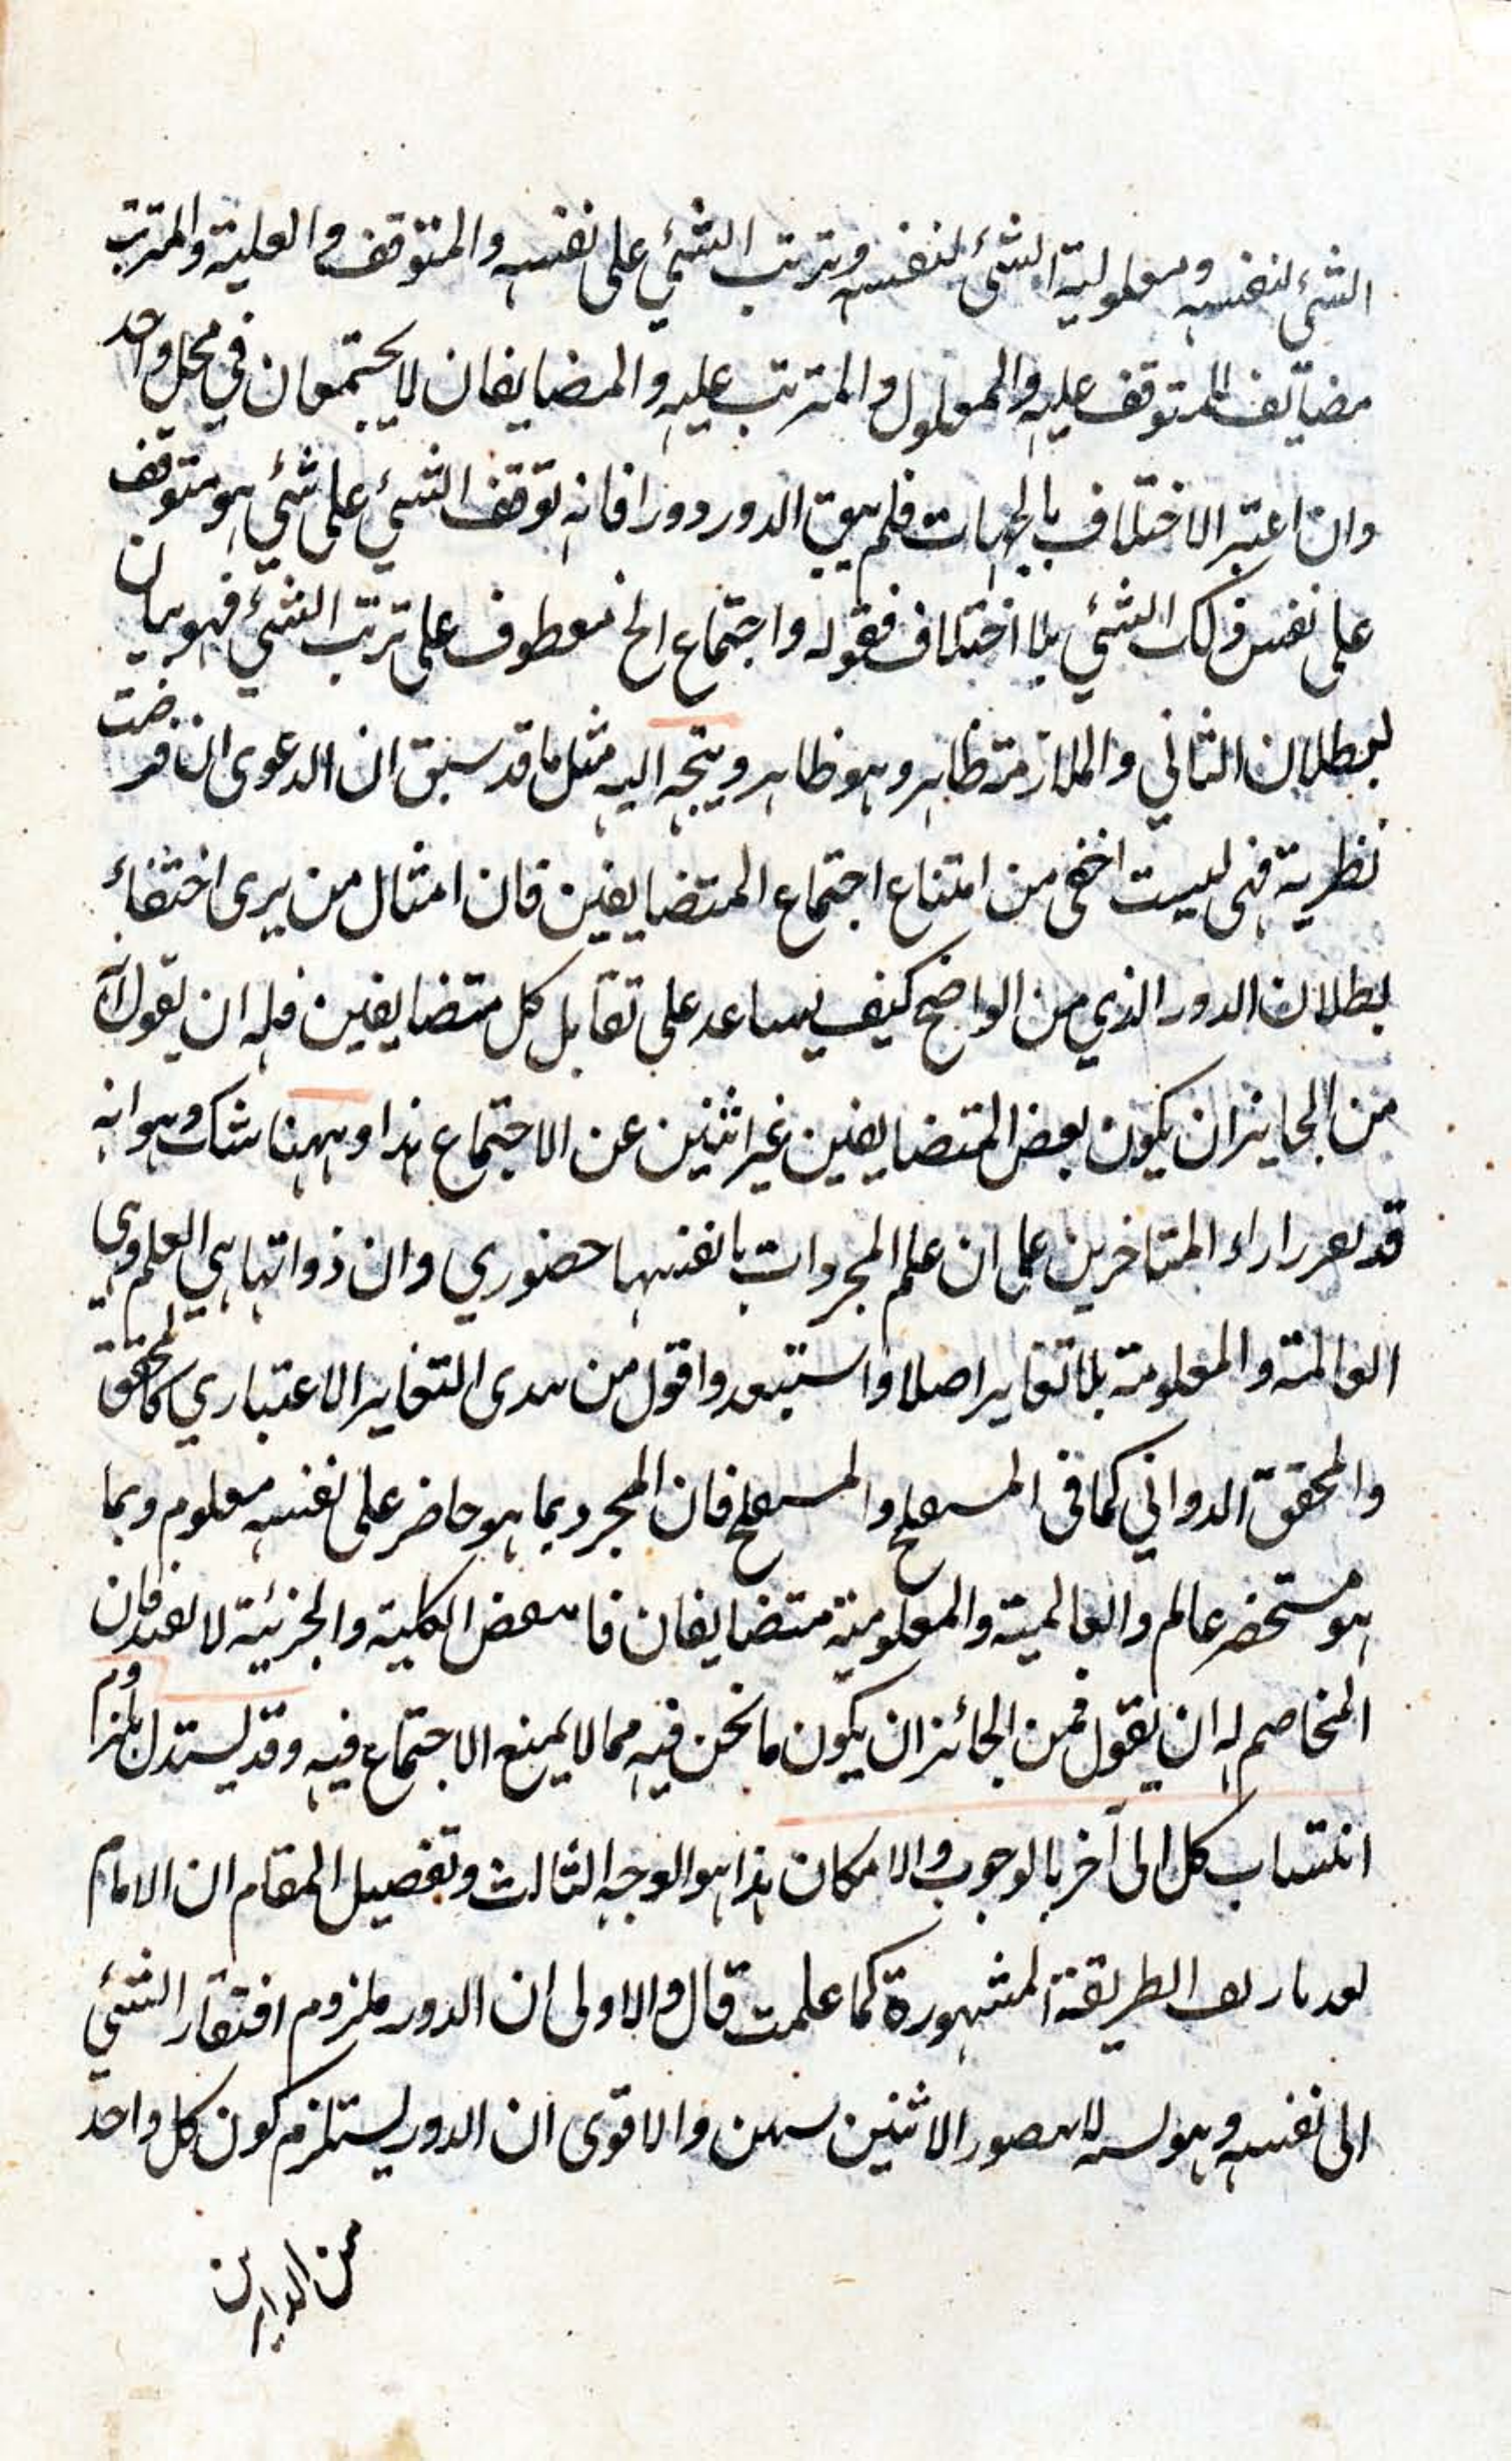 الشئ لنفسه ومعلولية الشئ لنفسه وترتب الشئي على نفسه والمتوقف والعلية والمترتب
مضايف للمتوقف عليه والمعلول والمترتب عليه والمضايفان لا يجتمعان في محل واحد
وان اعتبر الاختلاف بالجهات فلم يبق الدور دورا فانه توقف الشئي على شئي هو متوقف
على نفس ذلك الشئي بلا اختلاف فقوله واجتماع الخ معطوف على ترتب الشئي فهو بيان
لبطلان الثاني والملازمة ظاهر وهو ظاهر ويتجه اليه مثل ما قد سبق ان الدعوى ان فرضت
نظرية فهى ليست اخفى من امتناع اجتماع المتضايفين فان امثال من يرى اختفاء
بطلان الدور الذي من الواضح كيف يساعد على تقابل كل متضايفين فله ان يقول انه
من الجايز ان يكون بعض المتضايفين غير اثنين عن الاجتماع هذا وههنا شك وهو انه
قد تقرر اراء المتاخرين على ان علم المجردات بانفسها حضوري وان ذواتها هي العلم وهي
العالمة والمعلومة بلا تغاير اصلا واستبعد واقول من يدى التغاير الاعتباري كالمحقق
والمحقق الدواني كما فى المسعلج والمستعلج فان المجرد بما هو حاضر على نفسه معلوم وبما
هو مستحضر عالم والعالمية والمعلومية متضايفان فا بعض الكلية والجزئية لا تفيد فان
المخاصم له ان يقول فمن الجائز ان يكون ما نحن فيه مما لا يمنع الاجتماع فيه وقد يستدل بلزوم
انتساب كل الى آخر بالوجوب والامكان هذا هو الوجه الثالث وتفصيل المقام ان الامام
بعد ما زيف الطريقة المشهورة كما علمت قال والاولى ان الدور ملزوم افتقار الشئي
الى نفسه وهو نسبة لا يتصور الا بين والاقوى ان الدور يستلزم كون كل واحد
من الدايرين